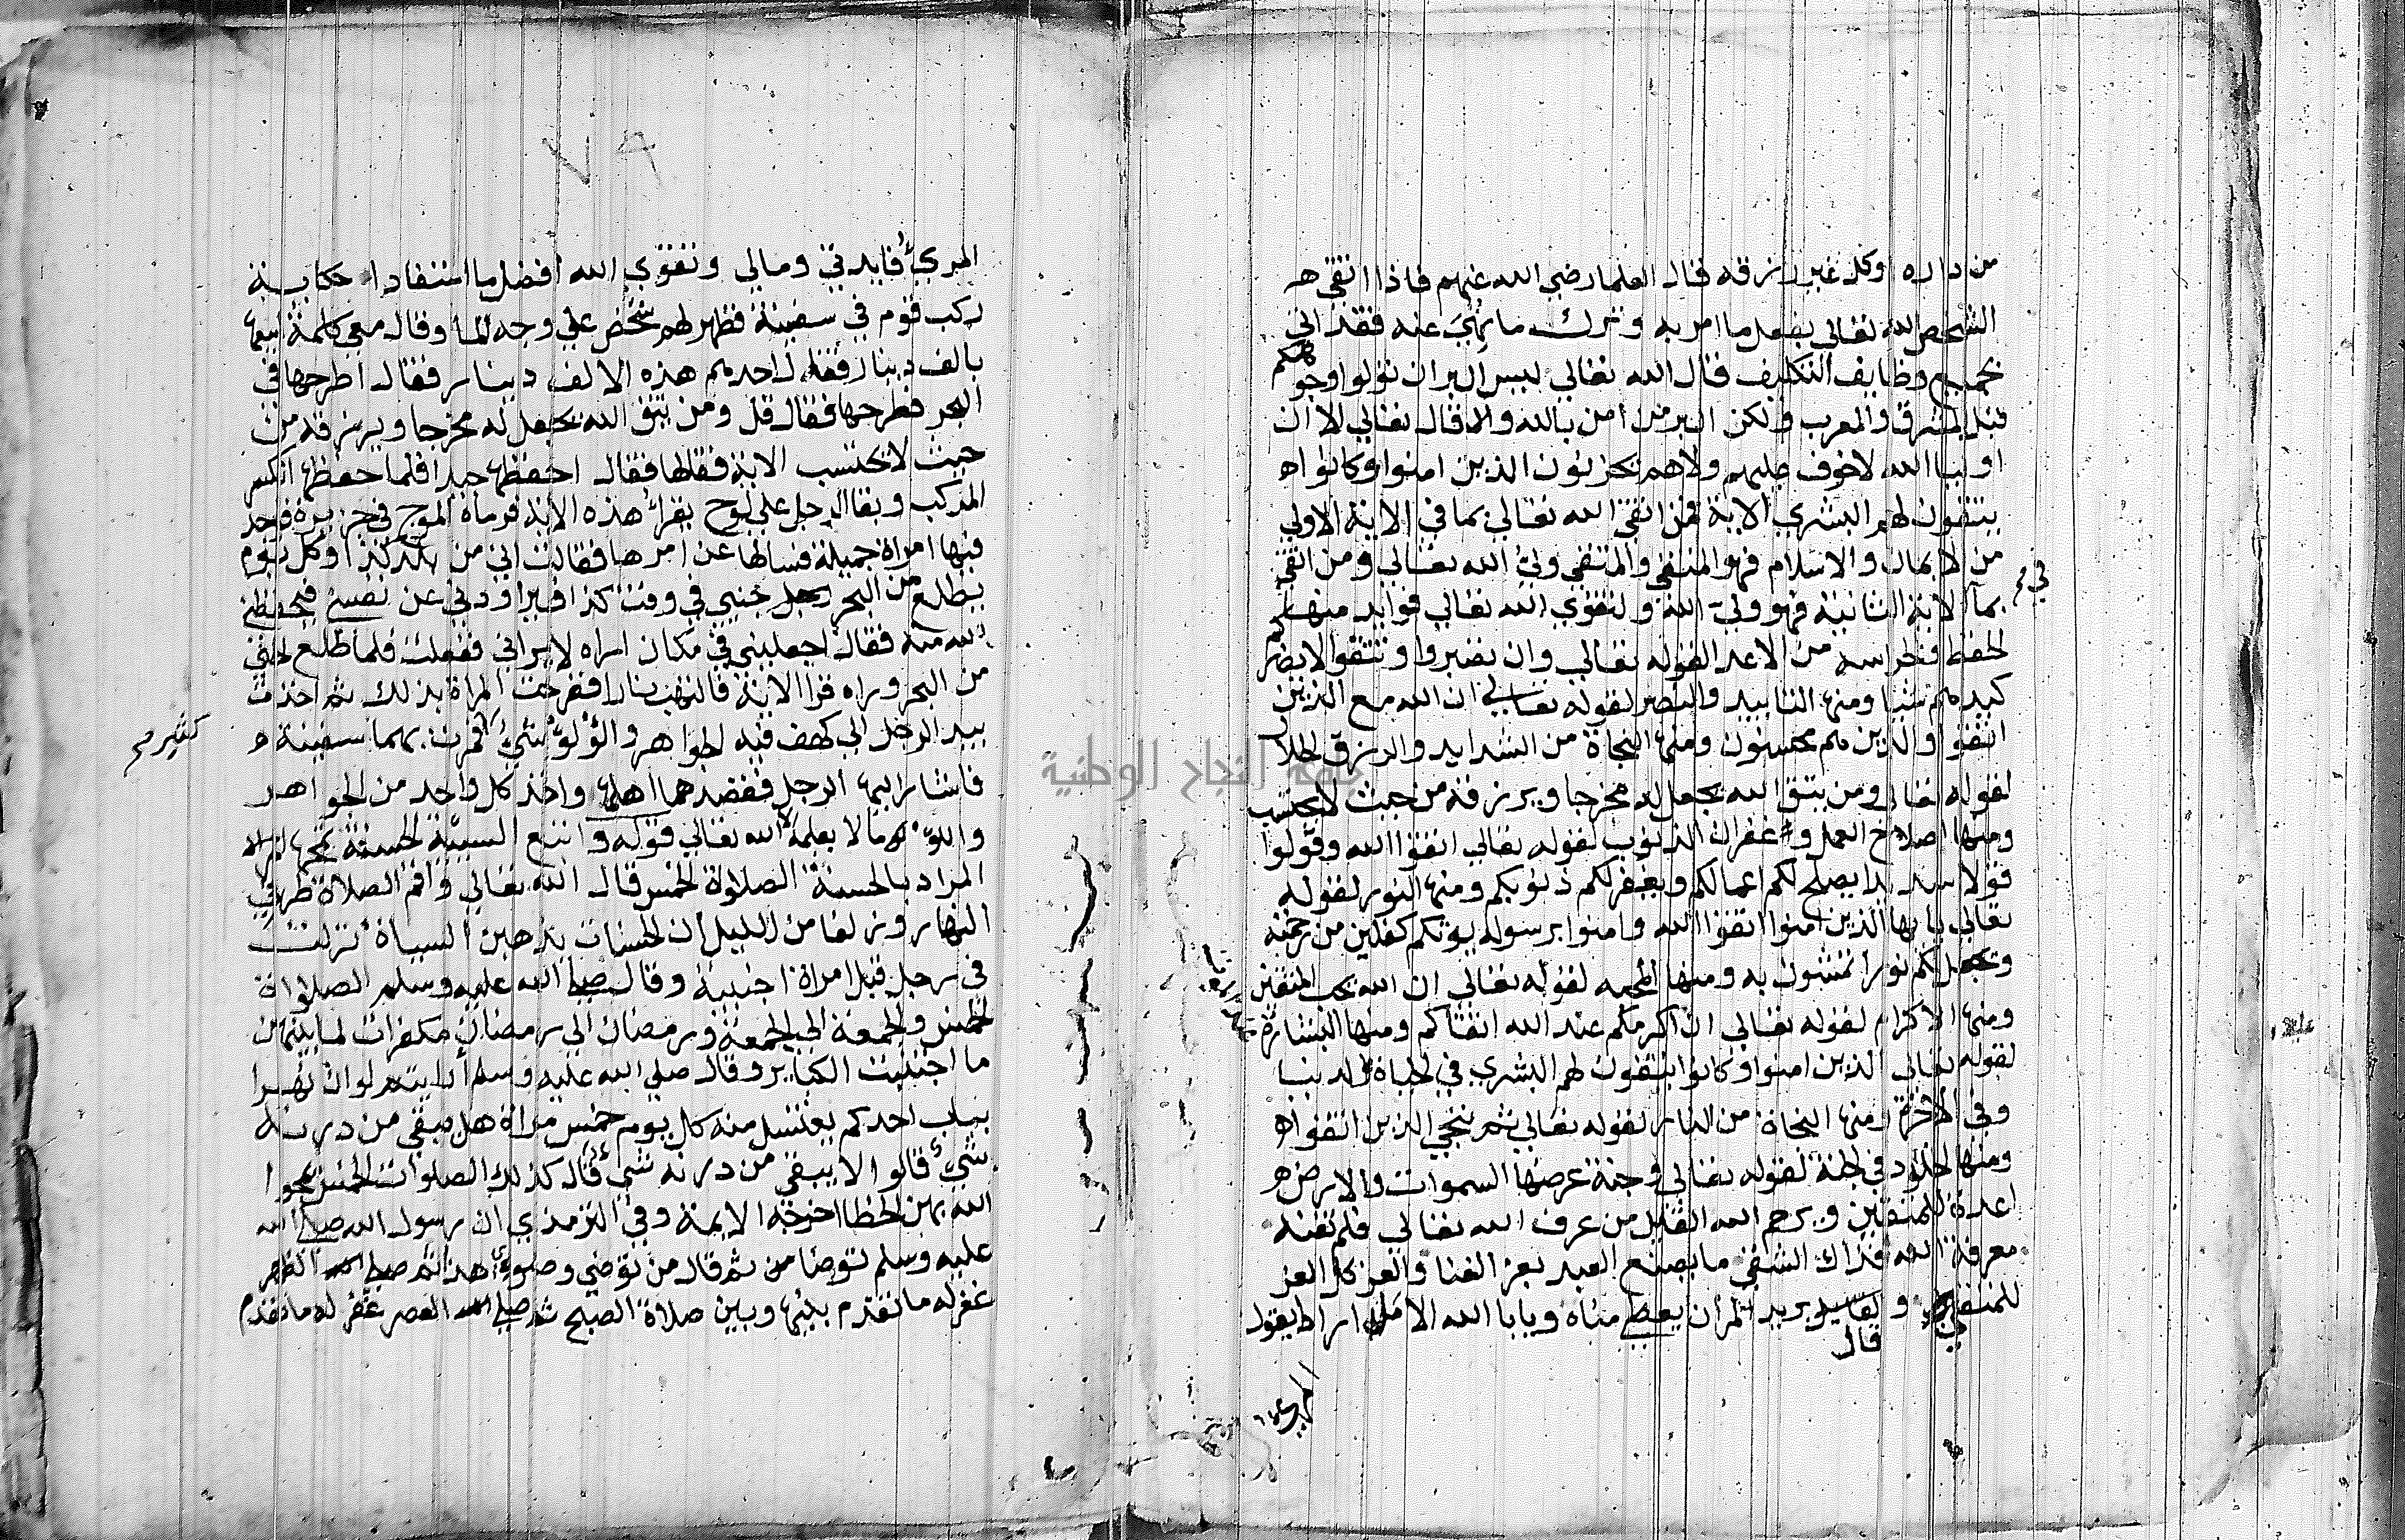 من داره اوكل غير رزقه قال العلما رضي الله عنهم فاذا اتقى هـ
الشخص الله تعالى بفعل ما امر به وترك ما نهي عنه فقد اتى
بجميع وظايف التكليف قال الله تعالى ليس البر ان تولوا وجوهكم
قبل المشرق والمغرب ولكن البر من امن بالله وقال تعالى الا ان
اوليا الله لا خوف عليهم ولا هم يحزنون الذين امنوا وكانوا هـ
يتقون لهم البشري الاية فمن اتقى الله تعالى بما في الاية الاولي
من الايمان والاسلام فهو المتقي والمتقي ولي الله تعالى ومن اتقى
في
بما الاية الثانية فهو ولي الله ولتقوي الله تعالى فوايد منها
الحفظ والحراسه من الاعدا لقوله تعالى وان تصبروا وتتقوا لا يضركم
كيدهم شيا ومنها التاييد والنصر لقوله تعالى ان الله مع الذين
اتقوا والذين هم محسنون ومنها النجاة من الشدايد والرزق الحلال
لقوله تعالى ومن يتق الله يجعل له مخرجا ويرزقه من حيث لا يحتسب
ومنها اصلاح العمل وغفران الذنوب لقوله تعالى اتقوا الله وقولوا
قولا سديدا يصلح لكم اعمالكم ويغفر لكم ذنوبكم ومنها النور لقوله
تعالى يا يها الذين امنوا اتقوا الله وامنوا برسوله يوتكم كفلين من رحمته
ويجعل لكم نورا تمشون به ومنها المحبه لقوله تعالى ان الله يحب المتقين
ومنها الاكرام لقوله تعالى ان اكرمكم عند الله اتقاكم ومنها البشارة
لقوله تعالى الذين امنوا وكانوا يتقون لهم البشري في الحياة الدنيا
وفي الاخرة ومنها النجاة من النار لقوله تعالى ثم ننجي الذين اتقوا هـ
ومنها الخلود في الجنة لقوله تعالى وجنة عرضها السموات والارض هـ
اعدة للمتقين ويرحم الله القايل من عرف الله تعالى فلم تغنه
معرفة الله فذاك الشقي ما يصنع العبد بعز الغنا والعز كل العز
للمتقي و يريد المرا ان يعطي مناه ويابا الله الا ما اراد يقول
قال
المرئ فايدتي ومالي وتقوي الله افضل ما استفادا حكاية
ركب قوم في سفينة فظهر لهم شخص على وجه الما وقال معي كلمة ابيعها
بالف دينار فقال احدهم هذه الالف دينار فقال اطرحها في
البحر فطرحها فقال قل ومن يتق الله يجعل له مخرجا ويرزقه من
حيث لا يحتسب الاية فقالها فقال احفظها جيدا فلما حفظها انكسر
المركب وبقا الرجل على لوح يقرا هذه الاية فرماه الموج في جزيرة فوجد
فيها امراة جميلة فسالها عن امرها فقالت اني من بلد كذا وكل يوم
يطلع من البحر جني في وقت كذا فيراودني عن نفسي فيحفظني
الله منه فقال اجعليني في مكان اراه لا يراني ففعلت فلما طلع الجني
من البحر وراه قرا الاية فالتهب نارا ففرحت المراة بذلك ثم اخذت
بيد الرجل الى كهف فيه الجواهر واللؤلؤ شيء فمرت بهما سفينة هـ
كثير صح
فاشار اليها الرجل فقصدهما اهلها واخذ كل واحد من الجواهر
واللؤلؤ ما لا يعلمه الا الله تعالى قوله واتبع السيئة الحسنة تمحها
المراد بالحسنة الصلوة الخمس قال الله تعالى واقم الصلاة طرفي
النهار وزلفا من الليل ان الحسنات يذهبن السيات نزلت
في رجل قبل امراة اجنبية وقال صلى الله عليه وسلم الصلواة
الخمس والجمعة الى الجمعة ورمضان الى رمضان مكفرات لما بينهن
ما اجتنبت الكباير وقال صلى الله عليه وسلم ارايتم لو ان نهرا
بباب احدكم يغتسل منه كل يوم خمس مراة هل يبقى من درنه
شيء قالوا لا يبقي من درنه شئ قال كذلك الصلوات الخمس يمحوا
الله بهن الخطا اخرجه الايمة وفي الترمذي ان رسول الله صلى الله
عليه وسلم توضا ثم قال من توضي وضوي هذا ثم صلى الظهر
غفر له ما تقدم بينها وبين صلاة الصبح ثم صلى العصر غفر له ما تقدم
جامعة النجاح الوطنية